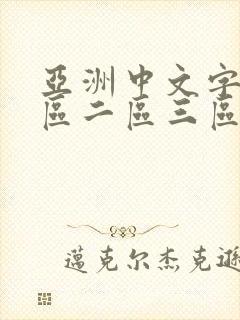 亞洲中文字
區二區三區
邁克尔杰克遜